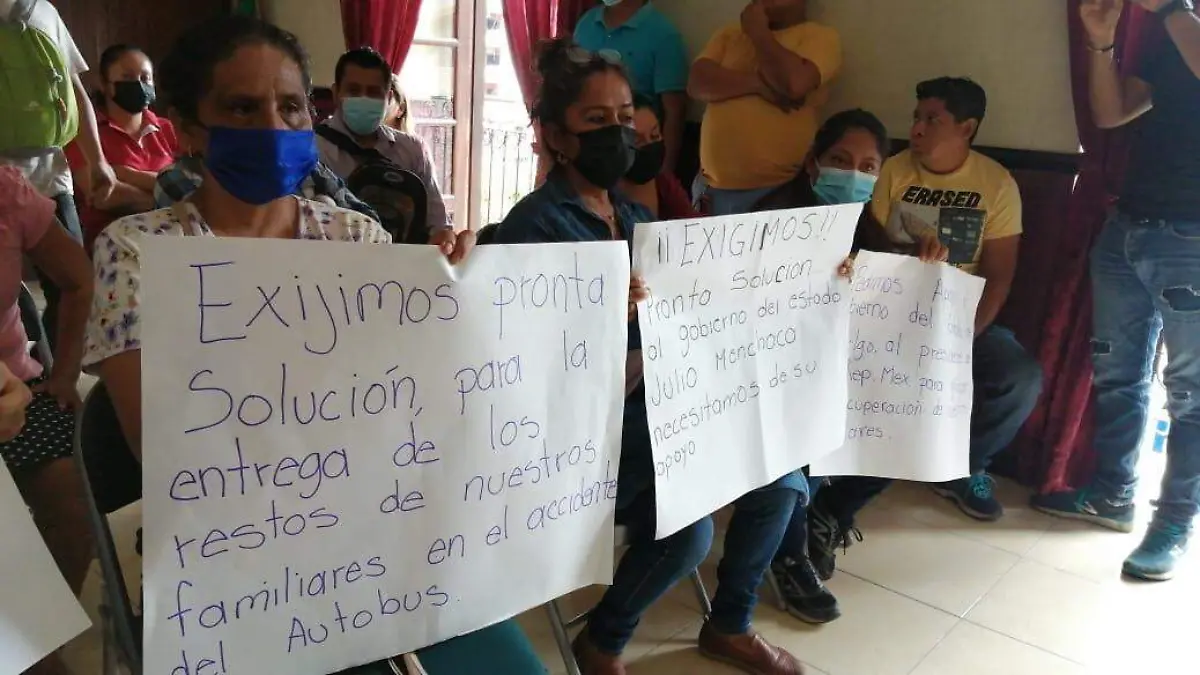 Exijimos pronta
Solución, para la
entrega de los
restos de nuestros
familiares en el accidente
del Autobus.
¡¡EXIGIMOS!!
Pronta Solucion
al gobierno del estado
Julio Menchaca
necesitamos de su
apoyo
del
al
Mex para
ERASED